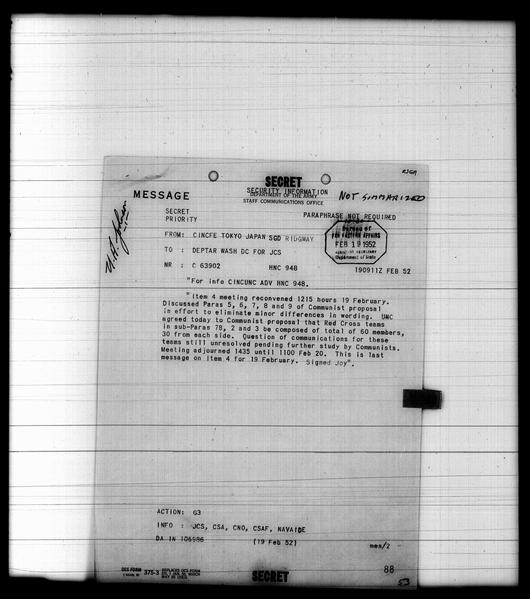 RJGA
SECRET
SECURITY INFORMATION
DEPARTMENT OF THE ARMY
STAFF COMMUNICATIONS OFFICE
MESSAGE
NOT SUMMARIZED
SECRET
PRIORITY
PARAPHRASE NOT REQUIRED
Bureau of
FAR EASTERN AFFAIRS
FEB 19 1952
Department of State
FROM: CINCFE TOKYO JAPAN SGD RIDGWAY
TO : DEPTAR WASH DC FOR JCS
NR : C 63902 HNC 948 190911Z FEB 52
"For info CINCUNC ADV HNC 948.
"Item 4 meeting reconvened 1215 hours 19 February.
Discussed Paras 5, 6, 7, 8 and 9 of Communist proposal
in effort to eliminate minor differences in wording. UNC
agreed today to Communist proposal that Red Cross teams
in sub-Paras 7B, 2 and 3 be composed of total of 60 members,
30 from each side. Question of communications for these
teams still unresolved pending further study by Communists.
Meeting adjourned 1435 until 1100 Feb 20. This is last
message on Item 4 for 19 February. Signed Joy".
ACTION: G3
INFO : JCS, CSA, CNO, CSAF, NAVAIDE
DA IN 106986 (19 Feb 52) mes/2
OCS FORM 375-3
88
SECRET
53